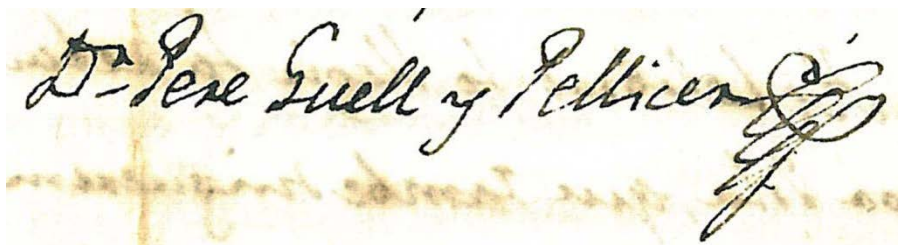 Dn Pere Guell y Pellicer